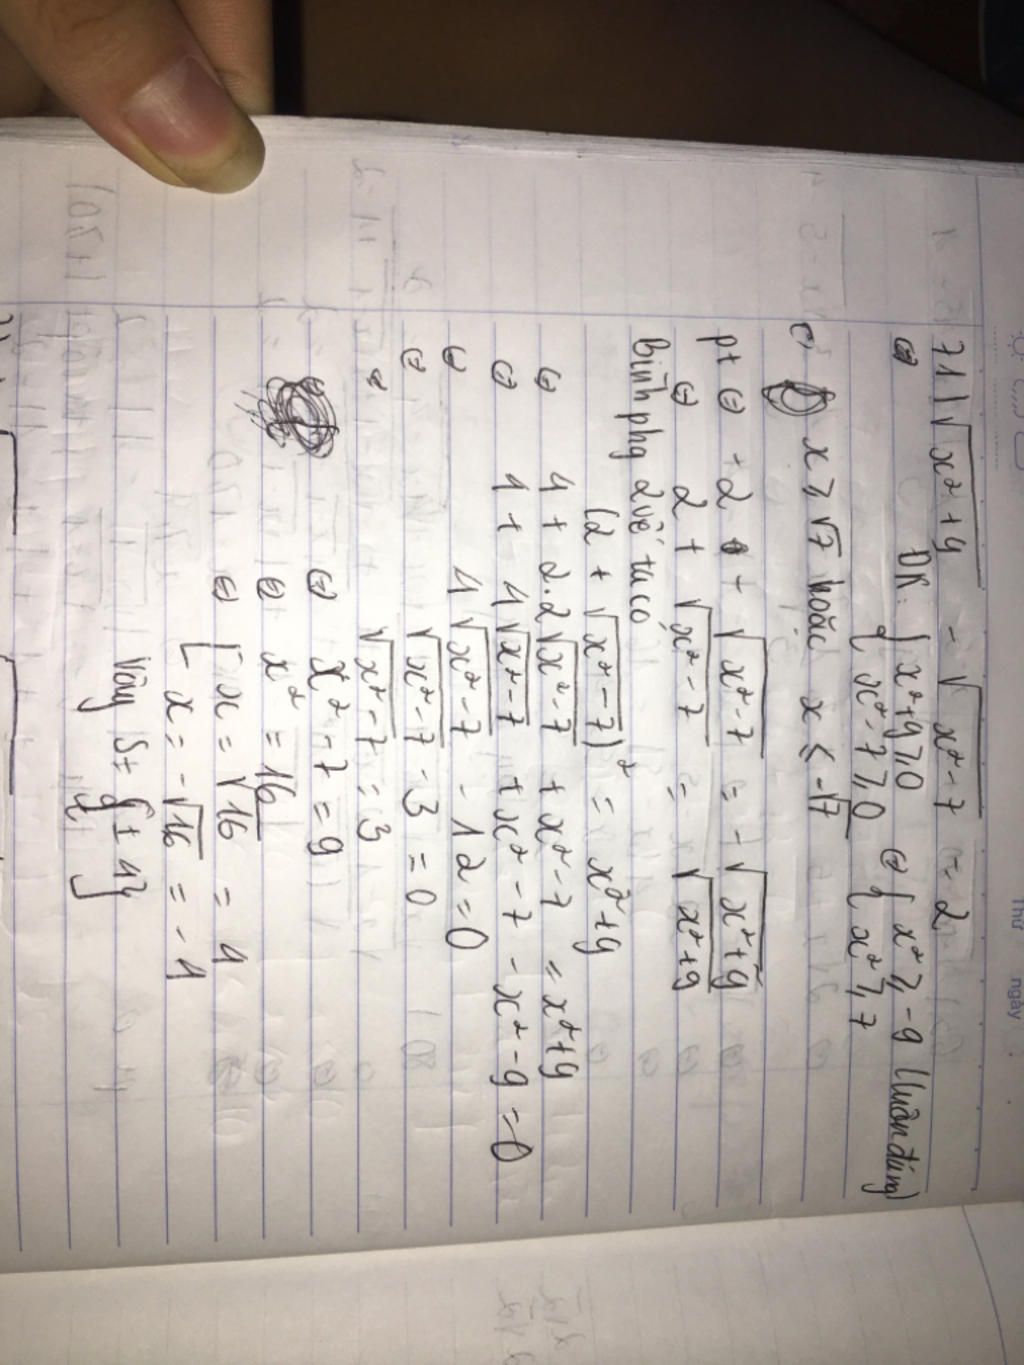 Thứ
ngày
71) √(x²+9) - √(x²-7) = 2
⇔ ĐK: { x²+9 ≥ 0 ⇔ { x² ≥ -9 (luôn đúng)
{ x²-7 ≥ 0 { x² ≥ 7
x ≥ √7 hoặc x ≤ -√7
pt ⇔ -2 - √(x²-7) = -√(x²+9)
⇔ 2 + √(x²-7) = √(x²+9)
Bình phg 2 vế ta có
(2 + √(x²-7))² = x²+9
⇔ 4 + 2.2√(x²-7) + x²-7 = x²+9
⇔ 4 + 4√(x²-7) + x²-7 - x²-9 = 0
⇔ 4√(x²-7) - 12 = 0
⇔ √(x²-7) - 3 = 0
√(x²-7) = 3
⇔ x²-7 = 9
⇔ x² = 16
⇔ [ x = √16 = 4
[ x = -√16 = -4
Vậy S = {±4}